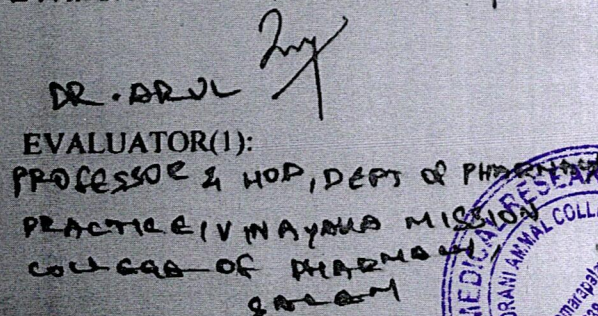 DR. ARUL
EVALUATOR(1):
PROFESSOR & HOD, DEPT OF PHARMACY
PRACTICE, VINAYAKA MISSION
COLLEGE OF PHARMACY,
SALEM
MEDICAL RESEAR
DRANI AMMAL COLL
marapal